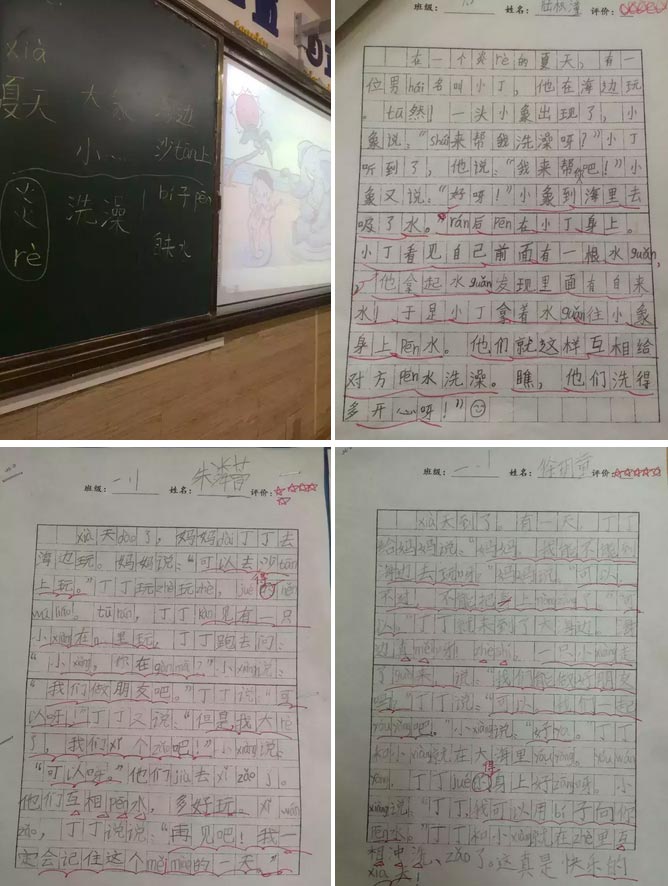 xià
夏天 大象 海边
小… 沙tān上
炎 洗澡 bí子pēn
rè
班级： 姓名： 评价：
在一个炎rè的夏天，有一
位男hái名叫小丁，他在海边玩
。tū然！一头小象出现了，小
象说：“shéi来帮我洗澡呀？”小丁
听到了，他说：“我来帮你吧！”小
象又说：“好呀！”小象到海里去
吸了水。rán后pēn在小丁身上。
小丁看见自己前面有一根水guǎn，
他拿起水guǎn发现里面有自来
水！于是小丁拿着水guǎn往小象
身上pēn水。他们就这样互相给
对方pēn水洗澡。瞧，他们洗得
多开心呀！”
班级： 一.1 姓名： 评价：
xià天dào了，妈妈dài丁丁去
海边玩。妈妈说：“可以去沙tān
上玩。”丁丁玩zhe玩zhe，jué得hěn
wú liáo。tū rán，丁丁kàn见有一只
小xiàng在。里玩，丁丁跑去问：
“小xiàng，你在gàn má？”小xiàng说：
“我们做朋友吧。”丁丁说：“可
以呀。”丁丁又说：“但是，我太rè
了，我们xǐ个zǎo吧！”小xiàng说：
“可以呀。”他们jiù去xǐ zǎo了。
他们互相pēn水，多好玩。xǐ wán
zǎo，丁丁说说：“再见吧！我一
定会记住这个měi miào的一天。”
班级： 一.1 姓名： 评价：
xià天到了。有一天，丁丁
给妈妈说：“妈妈，我能不能到
海边去玩呀。”妈妈说：“可以
不过，不能把身上
以。”丁丁就来到了大海边。海
边真 一只小xiàng走
了guò来，说：“我们能做好朋友
吗。”丁丁说：“可以，我们一起
yóu yǒng吧。”小xiàng说：“好ya。”丁丁
hé小xiàng就在大海里yóu yǒng。yóu wán
yǒng，丁丁jué得身上好zāng呀。小
xiàng说：“丁丁，我可以用bí子向你
pēn水。”丁丁hé小xiàng就在zhè里互
相冲洗zǎo了。这真是快乐的
xià天！